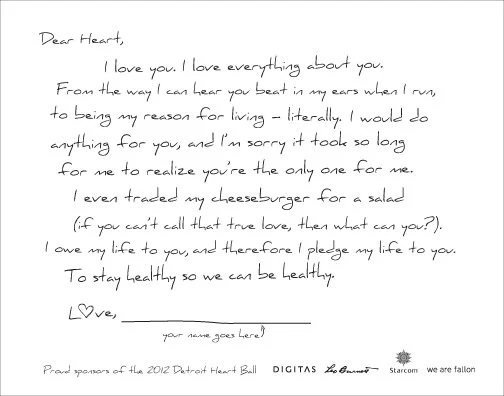 Dear Heart,
I love you. I love everything about you.
From the way I can hear you beat in my ears when I run,
to being my reason for living – literally. I would do
anything for you, and I'm sorry it took so long
for me to realize you're the only one for me.
I even traded my cheeseburger for a salad
(if you can't call that true love, then what can you?).
I owe my life to you, and therefore I pledge my life to you.
To stay healthy so we can be healthy.
L♡ve, ____________________
your name goes here↑
Proud sponsors of the 2012 Detroit Heart Ball DIGITAS Leo Burnett Starcom we are fallon